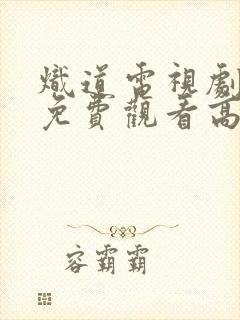 熾道電視劇
免費觀看高
容霸霸